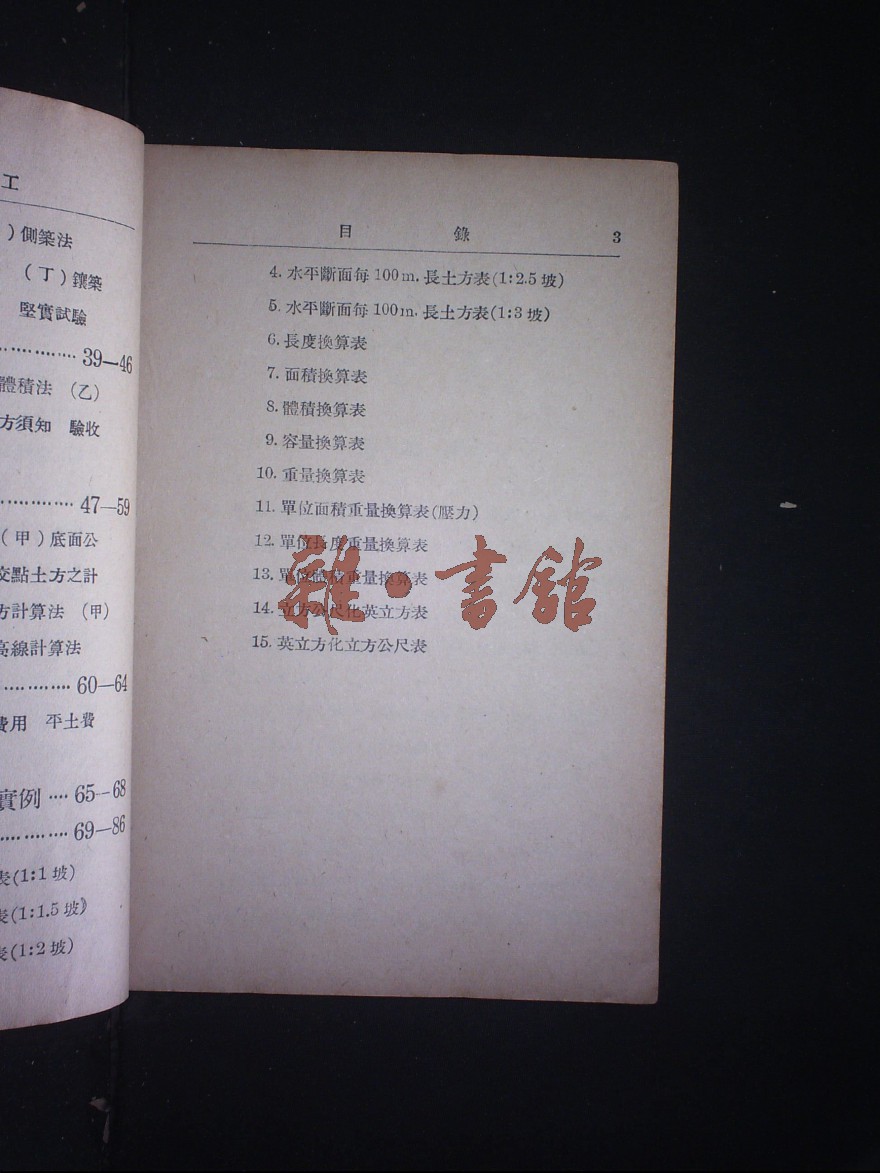 工
）側築法
（丁）鑲築
堅實試驗
·············· 39—46
體積法 （乙）
方須知 驗收
·············· 47—59
（甲）底面公
交點土方之計
方計算法 （甲）
高線計算法
·············· 60—64
費用 平土費
實例 ···· 65—68
·············· 69—86
表(1:1坡)
表(1:1.5坡)
表(1:2坡)
目 錄 3
4. 水平斷面每100m. 長土方表(1:2.5坡)
5. 水平斷面每100m. 長土方表(1:3坡)
6. 長度換算表
7. 面積換算表
8. 體積換算表
9. 容量換算表
10. 重量換算表
11. 單位面積重量換算表(壓力)
12. 單位長度重量換算表
13. 單位體積重量換算表
14. 立方公尺化英立方表
15. 英立方化立方公尺表
雜·書館